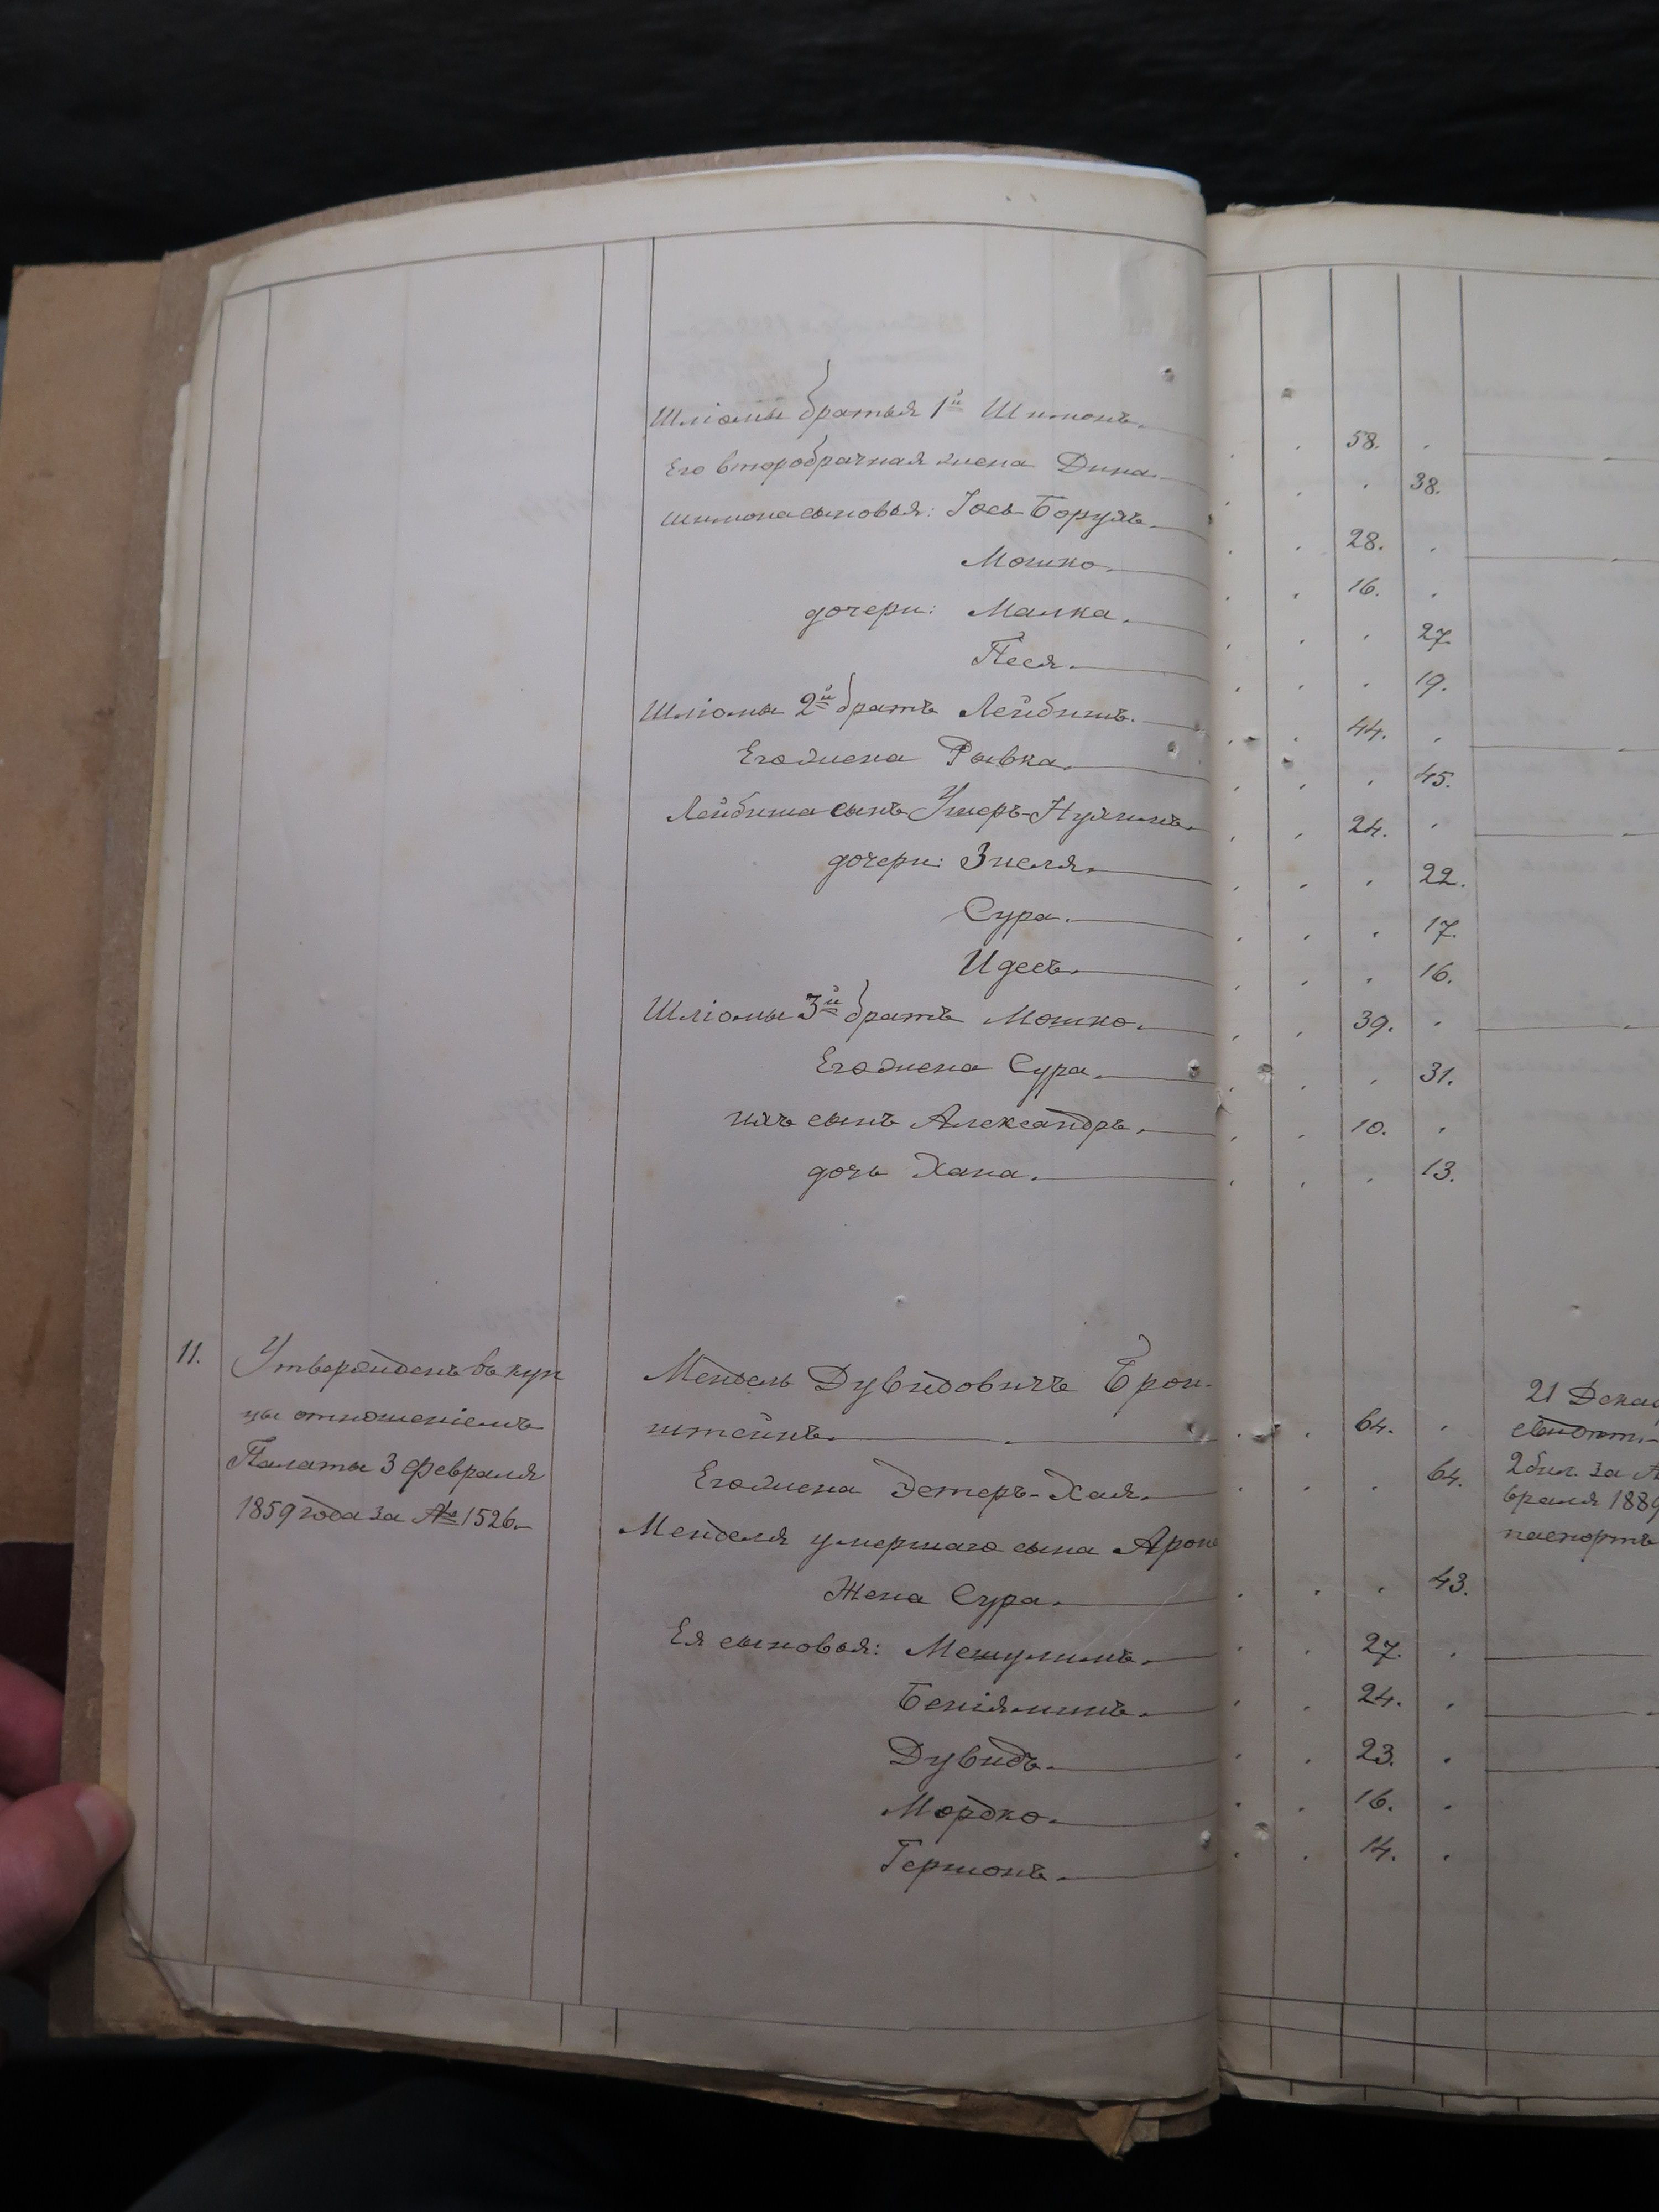 Шліомы братья 1й Шимонъ. 58.
Его второбрачная жена Дина. 38.
Шимона сыновья: Іось-Борухъ. 28.
Мошко. 16.
дочери: Малка. 27.
Песя. 19.
Шліомы 2й братъ Лейбишъ. 44.
Его жена Рывка. 45.
Лейбиша сынъ Ушеръ-Нухимъ. 24.
дочери: Зиселя. 22.
Сура. 17.
Идесъ. 16.
Шліомы 3й братъ Мошко. 39.
Его жена Сура. 31.
ихъ сынъ Александръ. 10.
дочь Хана. 13.
11.
Утвержденъ въ куп
цы отношеніемъ
Палаты 3 февраля
1859 года за № 1526.
Мендель Дувидовичъ Брон-
штейнъ. 64.
Его жена Эстеръ-Хая. 64.
Менделя умершаго сына Арона
Жена Сура. 43.
Ея сыновья: Мешулимъ. 27.
Беніяминъ. 24.
Дувидъ. 23.
Мордко. 16.
Гершонъ. 14.
21 Декаб
2 бил. за №
враля 1889
паспортъ